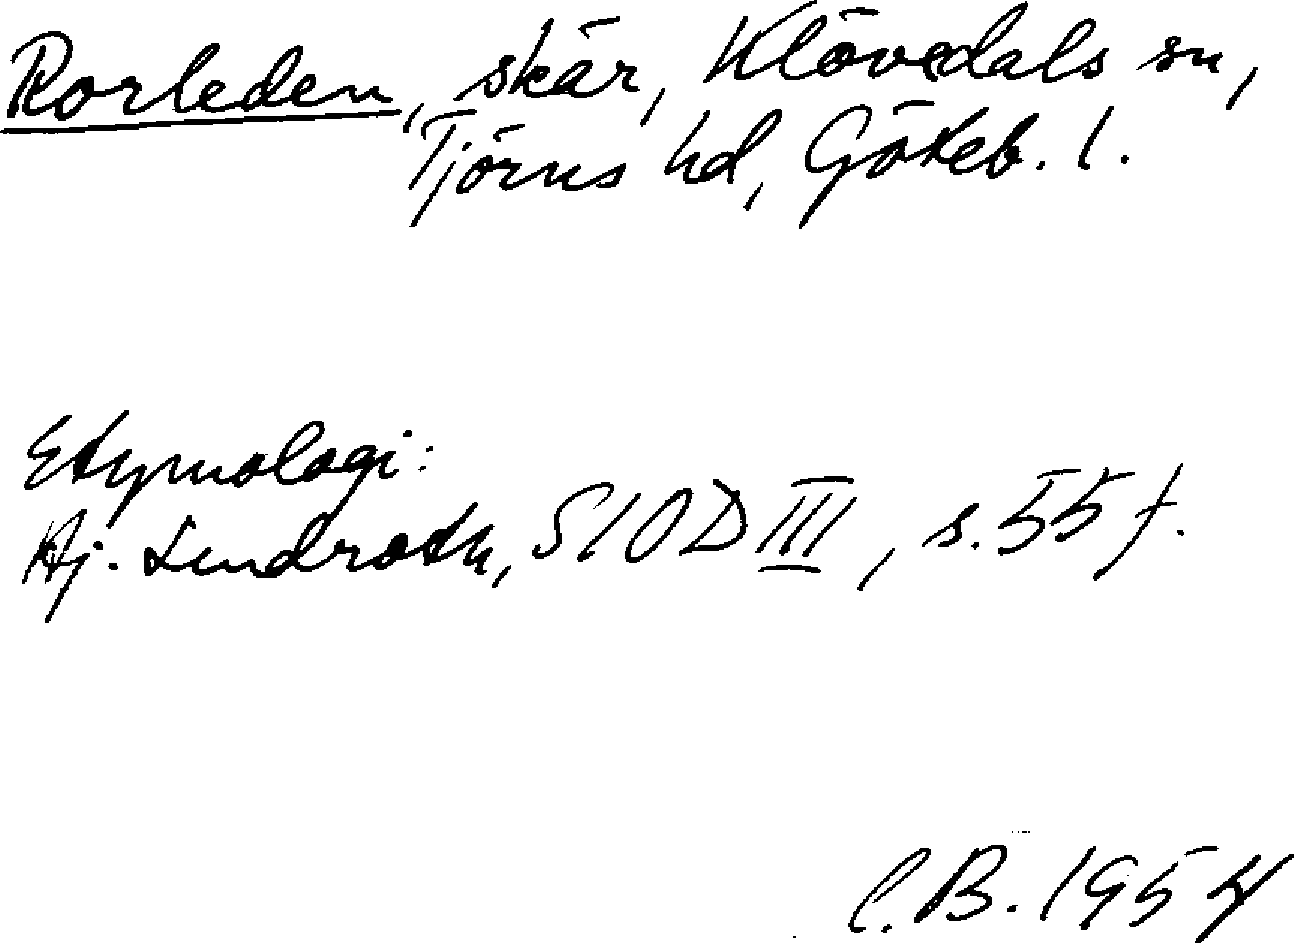 Rorleden, skär, Klövedals sn,
Tjörns hd, Göteb. l.
Etymologi:
Hj. Lindroth, SIOD III, s. 55 f.
C.B. 1954